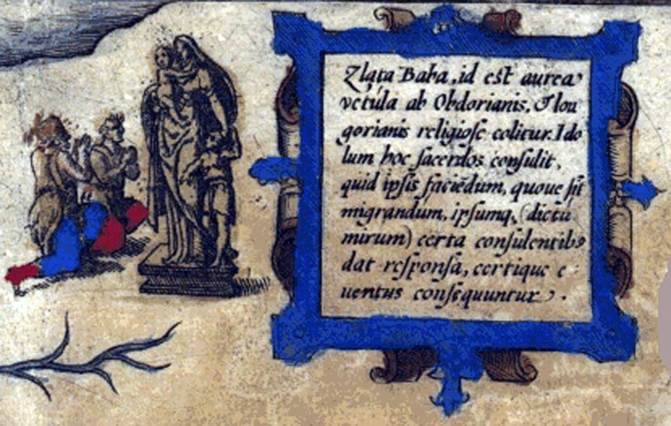 Zlata Baba, id est aurea
vetula ab Obdorianis, & Iou
gorianis religiose colitur. Ido
lum hoc sacerdos consulit,
quid ipsis faciēdum, quoue sit
migrandum, ipsumq. (dictu
mirum) certa consulentibꝰ
dat responsa, certique e
uentus consequuntur.